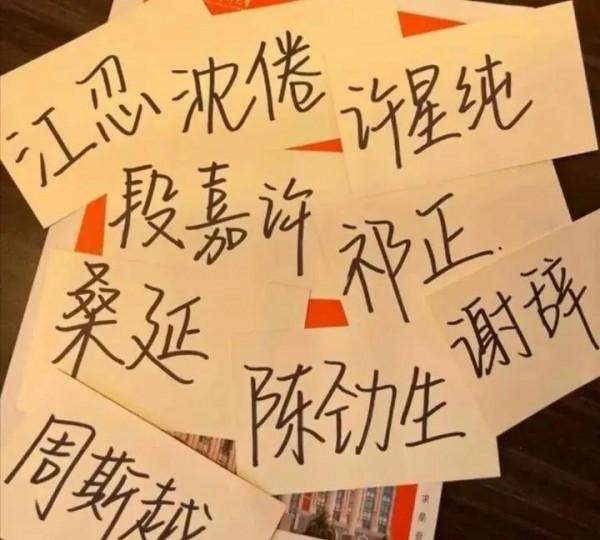 江忍 沈倦
许星纯
段嘉许
祁正.
桑延
谢辞
陈劲生
周斯越
求是